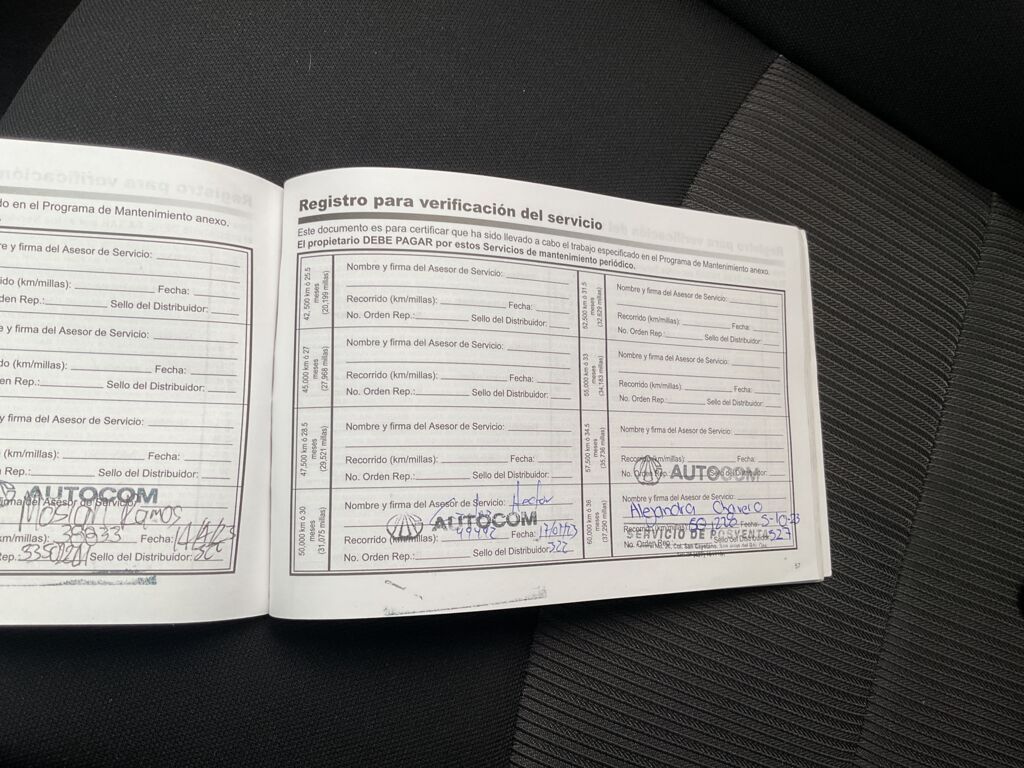 do en el Programa de Mantenimiento anexo.
re y firma del Asesor de Servicio:
rido (km/millas): Fecha:
den Rep.: Sello del Distribuidor:
re y firma del Asesor de Servicio:
do (km/millas): Fecha:
en Rep.: Sello del Distribuidor:
y firma del Asesor de Servicio:
(km/millas): Fecha:
Rep.: Sello del Distribuidor:
AUTOCOM
del Asesor de Servicio:
Ramos
km/millas): Fecha:
ep. Sello del Distribuidor:
Registro para verificación del servicio
Este documento es para certificar que ha sido llevado a cabo el trabajo especificado en el Programa de Mantenimiento anexo.
El propietario DEBE PAGAR por estos Servicios de mantenimiento periódico.
42,500 km ó 25.5
meses
(20,199 millas)
Nombre y firma del Asesor de Servicio:
Recorrido (km/millas): Fecha:
No. Orden Rep.: Sello del Distribuidor:
45,000 km ó 27
meses
(27,968 millas)
Nombre y firma del Asesor de Servicio:
Recorrido (km/millas): Fecha:
No. Orden Rep.: Sello del Distribuidor:
47,500 km ó 28.5
meses
(29,521 millas)
Nombre y firma del Asesor de Servicio:
Recorrido (km/millas): Fecha:
No. Orden Rep.: Sello del Distribuidor:
50,000 km ó 30
meses
(31,075 millas)
Nombre y firma del Asesor de Servicio: Hector
AUTOCOM
Recorrido (km/millas): 49992 Fecha:
No. Orden Rep.: Sello del Distribuidor: 322
52,500 km ó 31.5
meses
(32,629 millas)
Nombre y firma del Asesor de Servicio:
Recorrido (km/millas): Fecha:
No. Orden Rep.: Sello del Distribuidor:
55,000 km ó 33
meses
(34,183 millas)
Nombre y firma del Asesor de Servicio:
Recorrido (km/millas): Fecha:
No. Orden Rep.: Sello del Distribuidor:
57,500 km ó 34.5
meses
(35,736 millas)
Nombre y firma del Asesor de Servicio:
Recorrido (km/millas): Fecha:
No. Orden Rep.:
AUTOCOM
60,000 km ó 36
meses
(37,290 millas)
Nombre y firma del Asesor de Servicio:
Alejandra Chavero
Recorrido (km/millas): Fecha: 3-10-23
SERVICIO DE POSVENTA 527
No. Orden Rep.
57